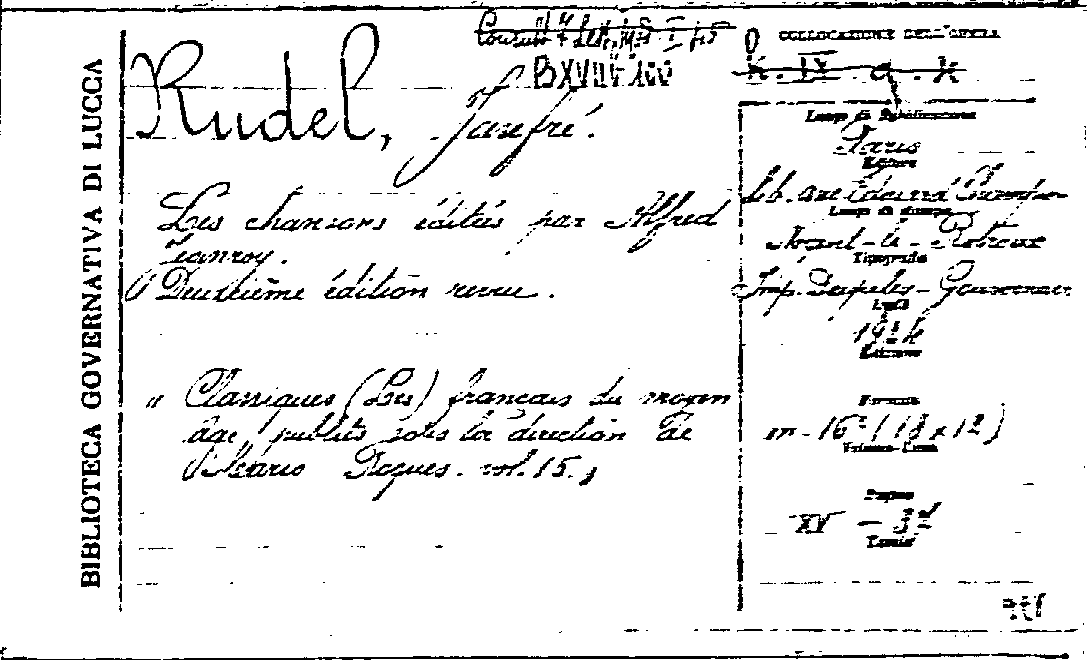 BIBLIOTECA GOVERNATIVA DI LUCCA
B XVIII G 100
COLLOCAZIONE DELL'OPERA
Rudel, Jaufré.
Les chansons éditées par Alfred
Jeanroy.
Deuxième édition revue.
" Classiques (Les) français du moyen
âge, publiés sous la direction de
Mario Roques. vol. 15.,
Luogo di Pubblicazione
Paris
Editore
Lib. anc. Edouard Champion
Luogo di stampa
Nogent-le-Rotrou
Tipografia
Imp. Daupeley-Gouverneur
1924
Edizione
Formato
in-16° (18 x 12)
Pagine
XV - 37